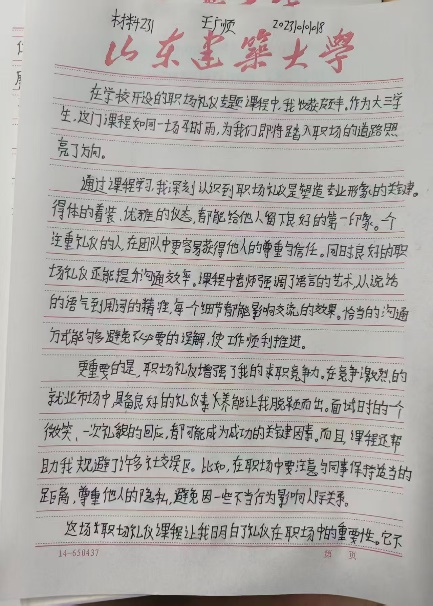 材料231 王广顺 20231010108
山东建筑大学
在学校开设的职场礼仪专题课程中,我收获颇丰。作为大三学
生,这门课程如同一场及时雨,为我们即将踏入职场的道路照
亮了方向。
通过课程学习,我深刻认识到职场礼仪是塑造专业形象的关键。
得体的着装、优雅的仪态,都能给他人留下良好的第一印象。一个
注重礼仪的人,在团队中更容易获得他人的尊重与信任。同时良好的职
场礼仪还能提升沟通效率。课程中老师强调了语言的艺术,从说话
的语气到用词的精准,每一个细节都能影响交流的效果。恰当的沟通
方式能够避免不必要的误解,使工作顺利推进。
更重要的是,职场礼仪增强了我的求职竞争力。在竞争激烈的
就业市场中,具备良好的礼仪素养能让我脱颖而出。面试时的一个
微笑、一次礼貌的回应,都可能成为成功的关键因素。而且,课程还帮
助我规避了许多社交误区。比如,在职场中要注意与同事保持适当的
距离,尊重他人的隐私,避免因一些不当行为影响人际关系。
这场职场礼仪课程让我明白了礼仪在职场中的重要性。它不
14-650437 第 页